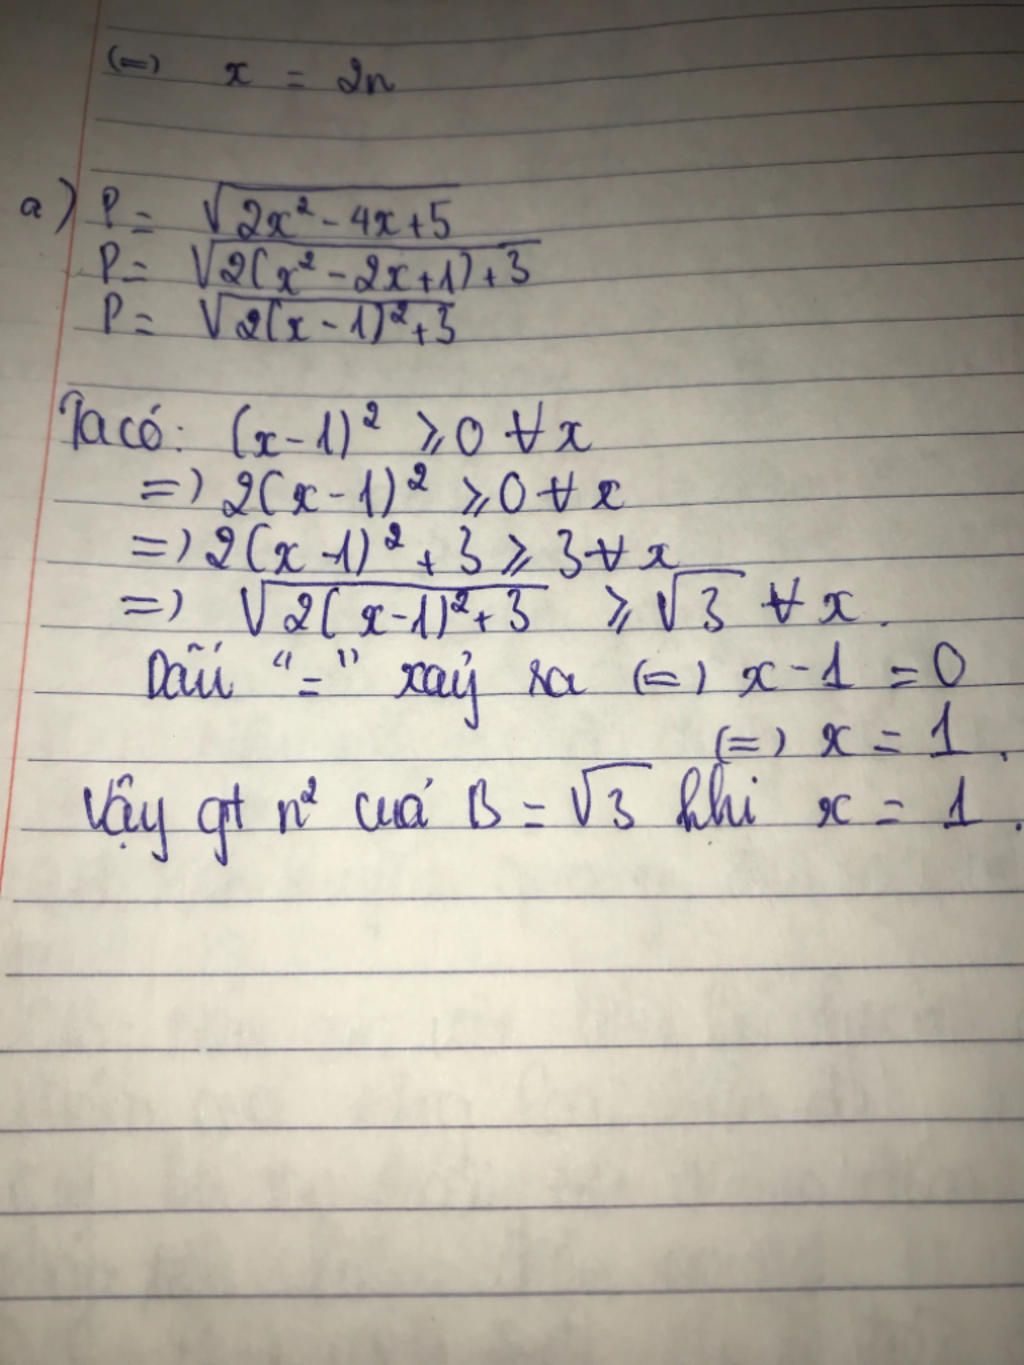 (=) x = 2n
a) P = √2x² - 4x + 5
P = √2(x² - 2x + 1) + 3
P = √2(x - 1)² + 3
Ta có: (x - 1)² ⩾ 0 ∀x
=) 2(x - 1)² ⩾ 0 ∀x
=) 2(x - 1)² + 3 ⩾ 3 ∀x
=) √2(x - 1)² + 3 ⩾ √3 ∀x.
Dấu "=" xảy ra (=) x - 1 = 0
(=) x = 1.
Vậy gt n² của B = √3 khi x = 1.